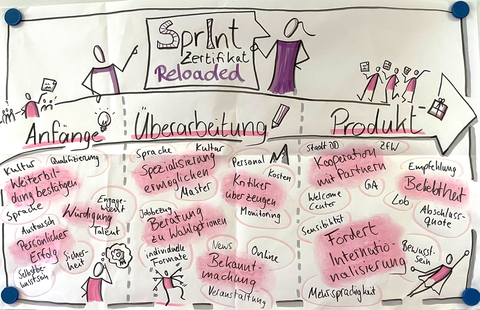 SprInt
Zertifikat
Reloaded
Anfänge
Überarbeitung
Produkt
Kultur
Qualifizierung
Weiterbil-
dung bestätigen
Sprache
Engage-
ment
Würdigung
Austausch
Talent
Persönlicher
Erfolg
Selbstbe-
wusstsein
Sicher-
heit
Sprache
Kultur
Spezialisierung
ermöglichen
Master
Personal
Kosten
Kritiker
überzeugen
Monitoring
Jobbezug
Beratung
zu Wahloptionen
individuelle
Formate
News
Online
Bekannt-
machung
Veranstaltung
Stadt DD
ZFW
Kooperation
mit Partnern
Welcome
Center
GA
Empfehlung
Beliebtheit
Lob
Abschluss-
quote
Sensibilität
Fördert
Internatio-
nalisierung
Bewusst-
sein
Mehrsprachigkeit